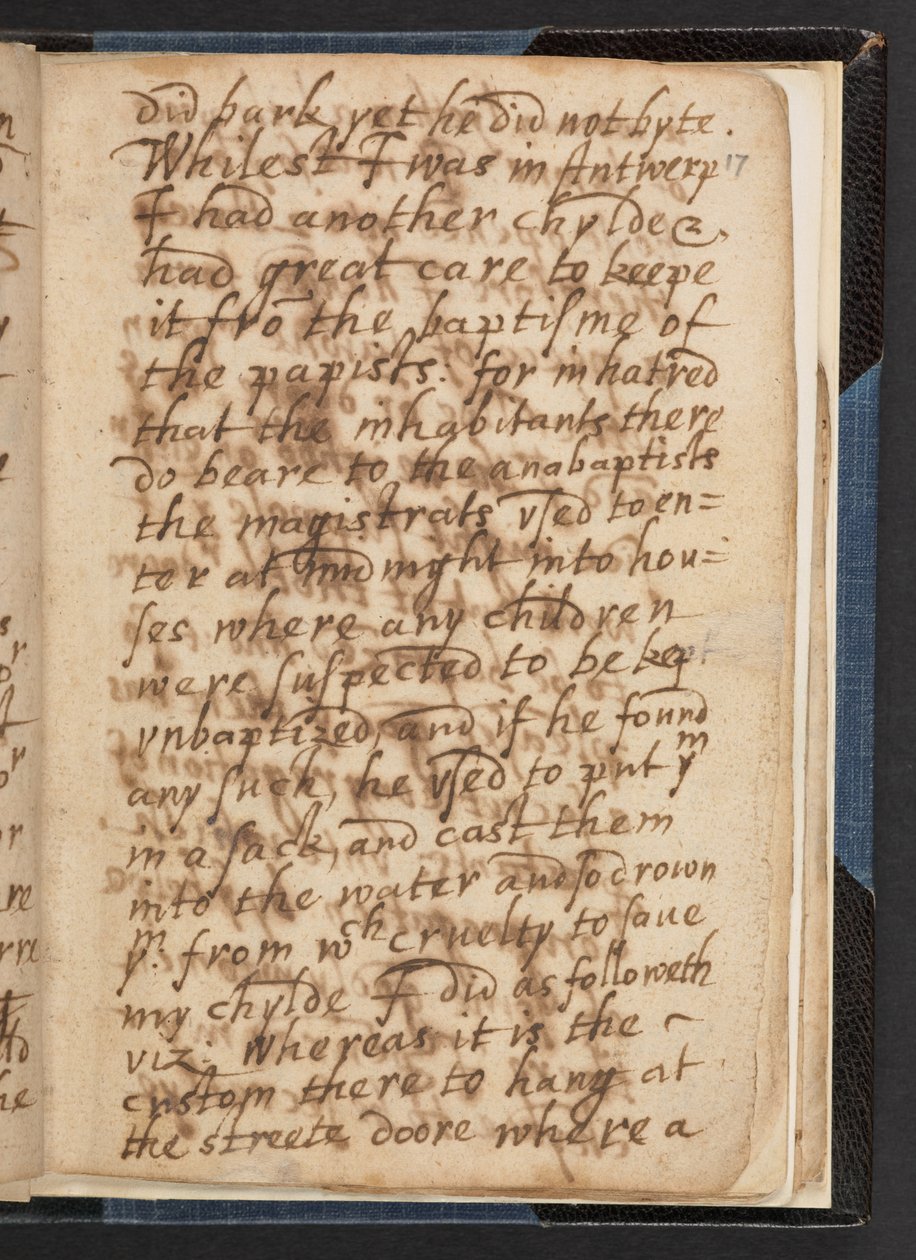 did bark yet he did not byte.
Whilest I was in Antwerp 17
I had another chylde &
had great care to keepe
it frō the baptiſme of
the papists: for in hatred
that the inhabitants there
do beare to the anabaptists
the magistrats vſed to en=
ter at midnight into hou=
ſes where any children
were ſuſpected to be kep
vnbaptized, and if he found
any ſuch, he vſed to put yᵐ
in a ſack, and cast them
into the water and ſo drown
yᵐ. from wᶜʰ cruelty to ſaue
my chylde I did as followeth
viz: Whereas it is the ~
custom there to hang at
the streete doore where a